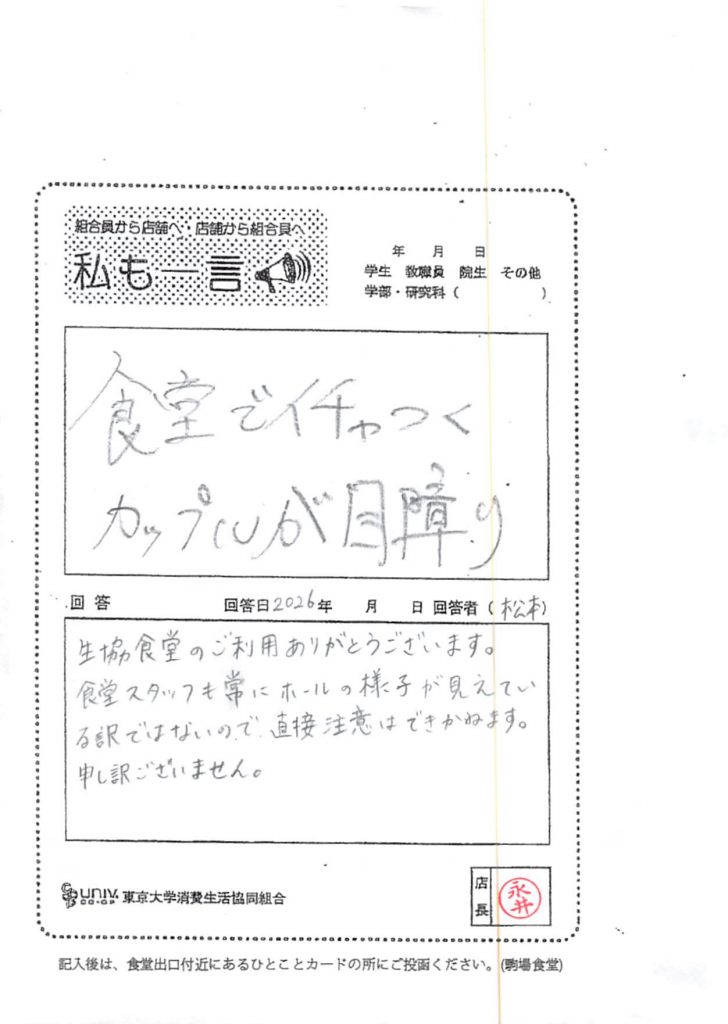 組合員から店舗へ 店舗から組合員へ
私も一言
年 月 日
学生 教職員 院生 その他
学部・研究科( )
食堂でイチャつく
カップルが目障り
回答 回答日2026年 月 日 回答者(松本)
生協食堂のご利用ありがとうございます。
食堂スタッフも常にホールの様子が見えてい
る訳ではないので、直接注意はできかねます。
申し訳ございません。
UNIV. CO-OP 東京大学消費生活協同組合
店長 永井
記入後は、食堂出口付近にあるひとことカードの所にご投函ください。(駒場食堂)